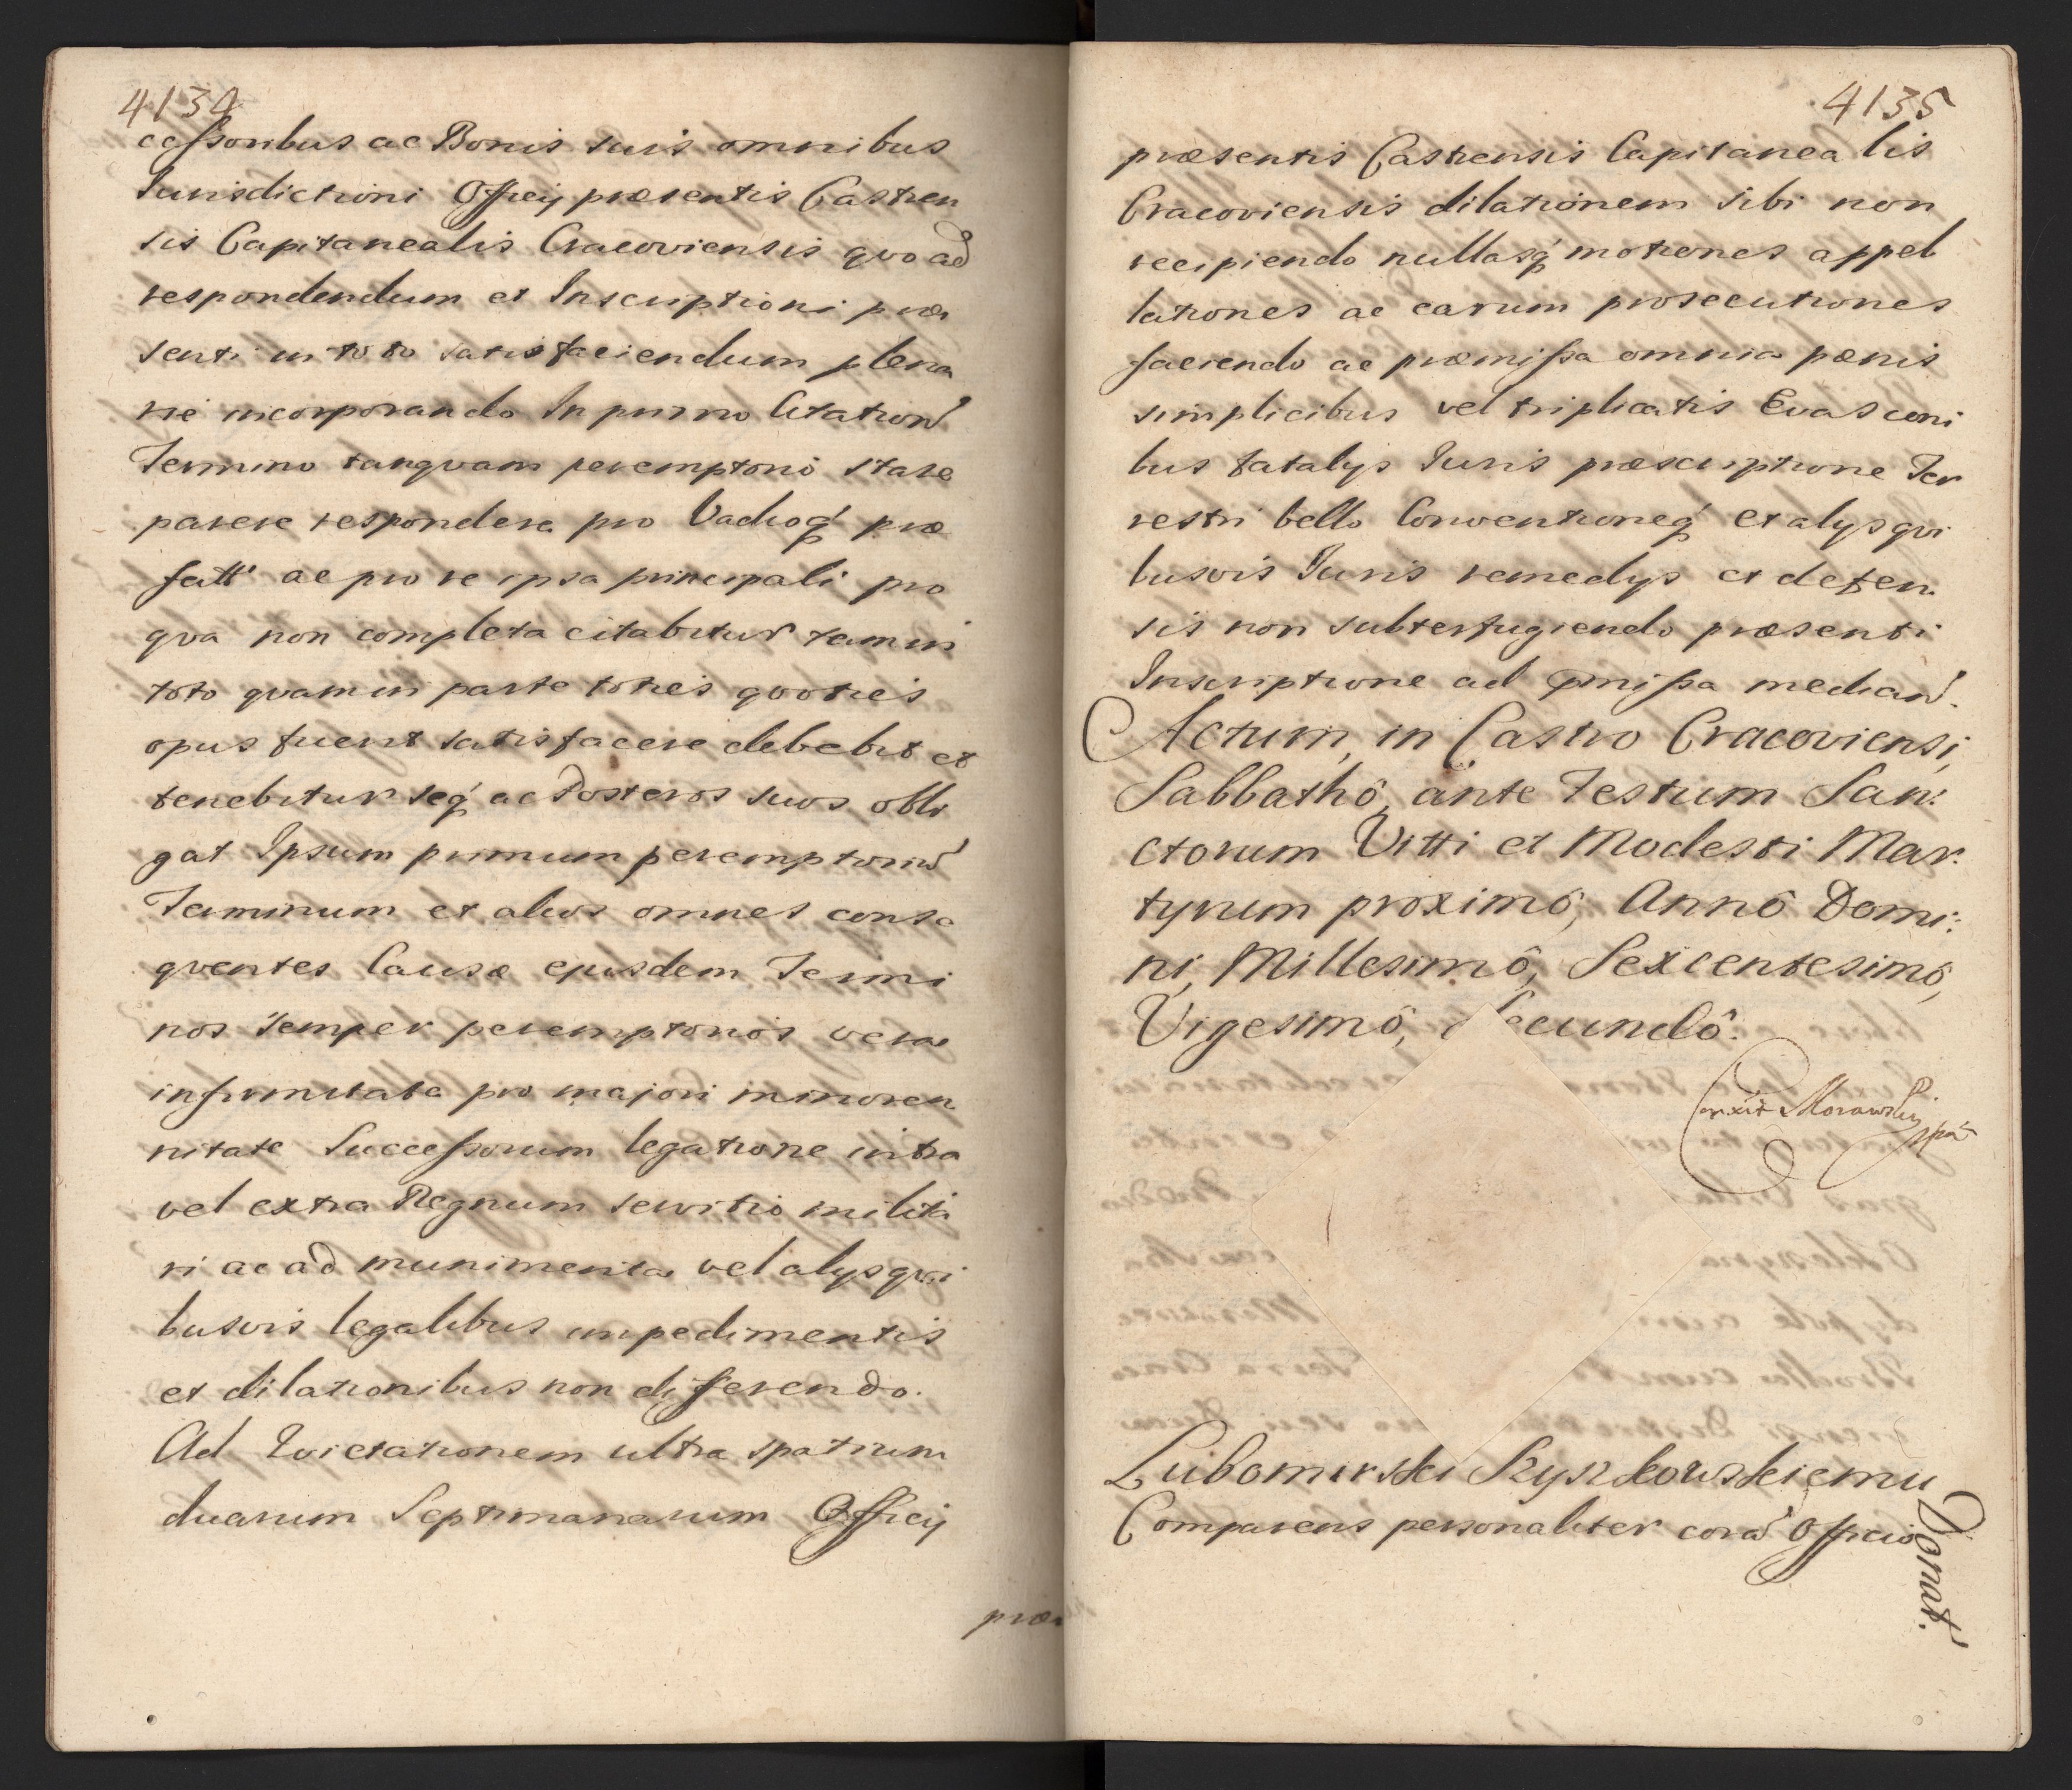 4134
cessoribus ac Bonis suis omnibus
Jurisdictioni Officij præsentis Castren
sis Capitanealis Cracoviensis quo ad
respondendum et Inscriptioni præ
senti in toto satisfaciendum plena
rie incorporando In primo Citation̄
Termino tanquam peremptorio stare
parere respondere pro Vadioq́ præ
fatt' ac pro re ipsa principali pro
qva non completa citabitur tam in
toto qvam in parte toties qvoties
opus fuerit satisfacere debebit et
tenebitur seq́ ac Posteros suos obli
gat Ipsum primum peremptoriū
Terminum et alios omnes conse
qventes Causæ ejusdem Termi
nos semper peremptorios vera
infirmitate pro majori minoren
nitate Successorum legatione intra
vel extra Regnum servitio milita
ri ac ad munimenta vel alijs qvi
busvis legalibus impedimentis
et dilationibus non differendo.
Ad Evictationem ultra spatium
duarum Septimanarum Officij
præ
4135
præsentis Castrensis Capitanealis
Cracoviensis dilationem sibi non
recipiendo nullasq́ motiones appel
lationes ac earum prosecutiones
faciendo ac præmissa omnia pænis
simplicibus vel triplicatis Evasioni
bus fatalijs Juris præscriptione Ter
restri bello Conventioneq́ et alijs qvi
busvis Juris remedijs et defen
sis non subterfugiendo præsenti
Inscriptione ad p̄missa median̄.
Actum, in Castro Cracoviensi,
Sabbathô, ante Festum San:
ctorum Vitti et Modesti Mar:
tyrum proximô, Annô Domi:
ni, Millesimô, Sexcentesimô,
Vigesimô, Secundô.
Correxit Morawski
mpa
Lubomirski Szyszkowskiemu
Comparens personaliter corā Officio
Donat.